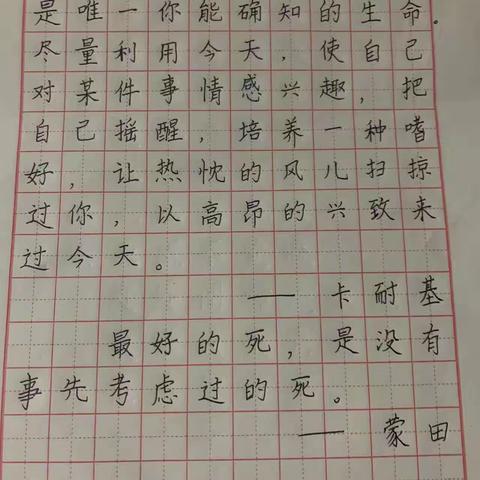 是唯一你能确知的生命.
尽量利用今天,使自己
对某件事情感兴趣,把
自己摇醒,培养一种嗜
好,让热忱的风儿扫掠
过你,以高昂的兴致来
过今天。
——卡耐基
最好的死,是没有
事先考虑过的死。
——蒙田